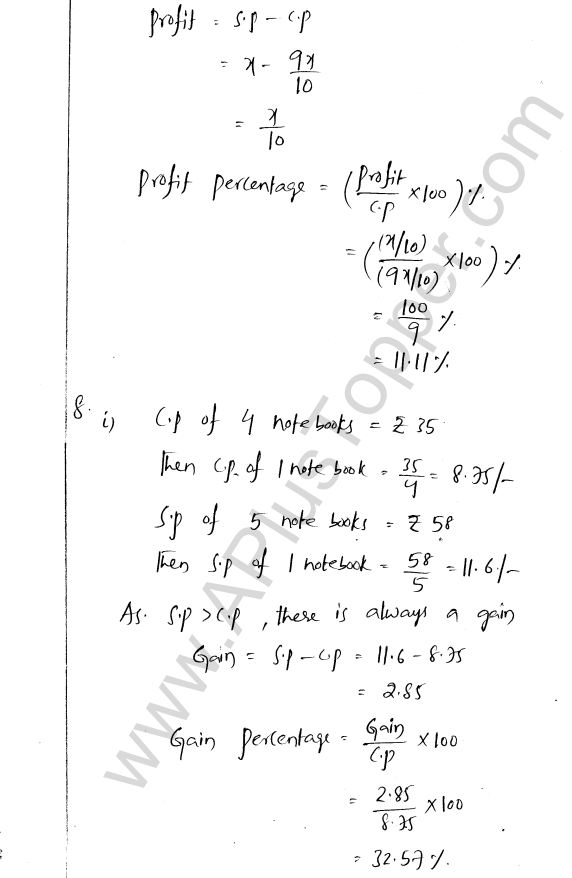 Profit = S.p - C.p
= x - 9x/10
= x/10
Profit Percentage = (Profit/C.p × 100) %.
= ((x/10)/(9x/10) × 100) %.
= 100/9 %.
= 11.11 %.
8. i) C.p of 4 notebooks = ₹ 35
Then C.p. of 1 note book = 35/4 = 8.75/-
S.p of 5 note books = ₹ 58
Then S.p of 1 notebook = 58/5 = 11.6/-
As. S.p > C.p, there is always a gain
Gain = S.p - C.p = 11.6 - 8.75
= 2.85
Gain Percentage = Gain/C.p × 100
= 2.85/8.75 × 100
= 32.57 %.
www.APlusTopper.com